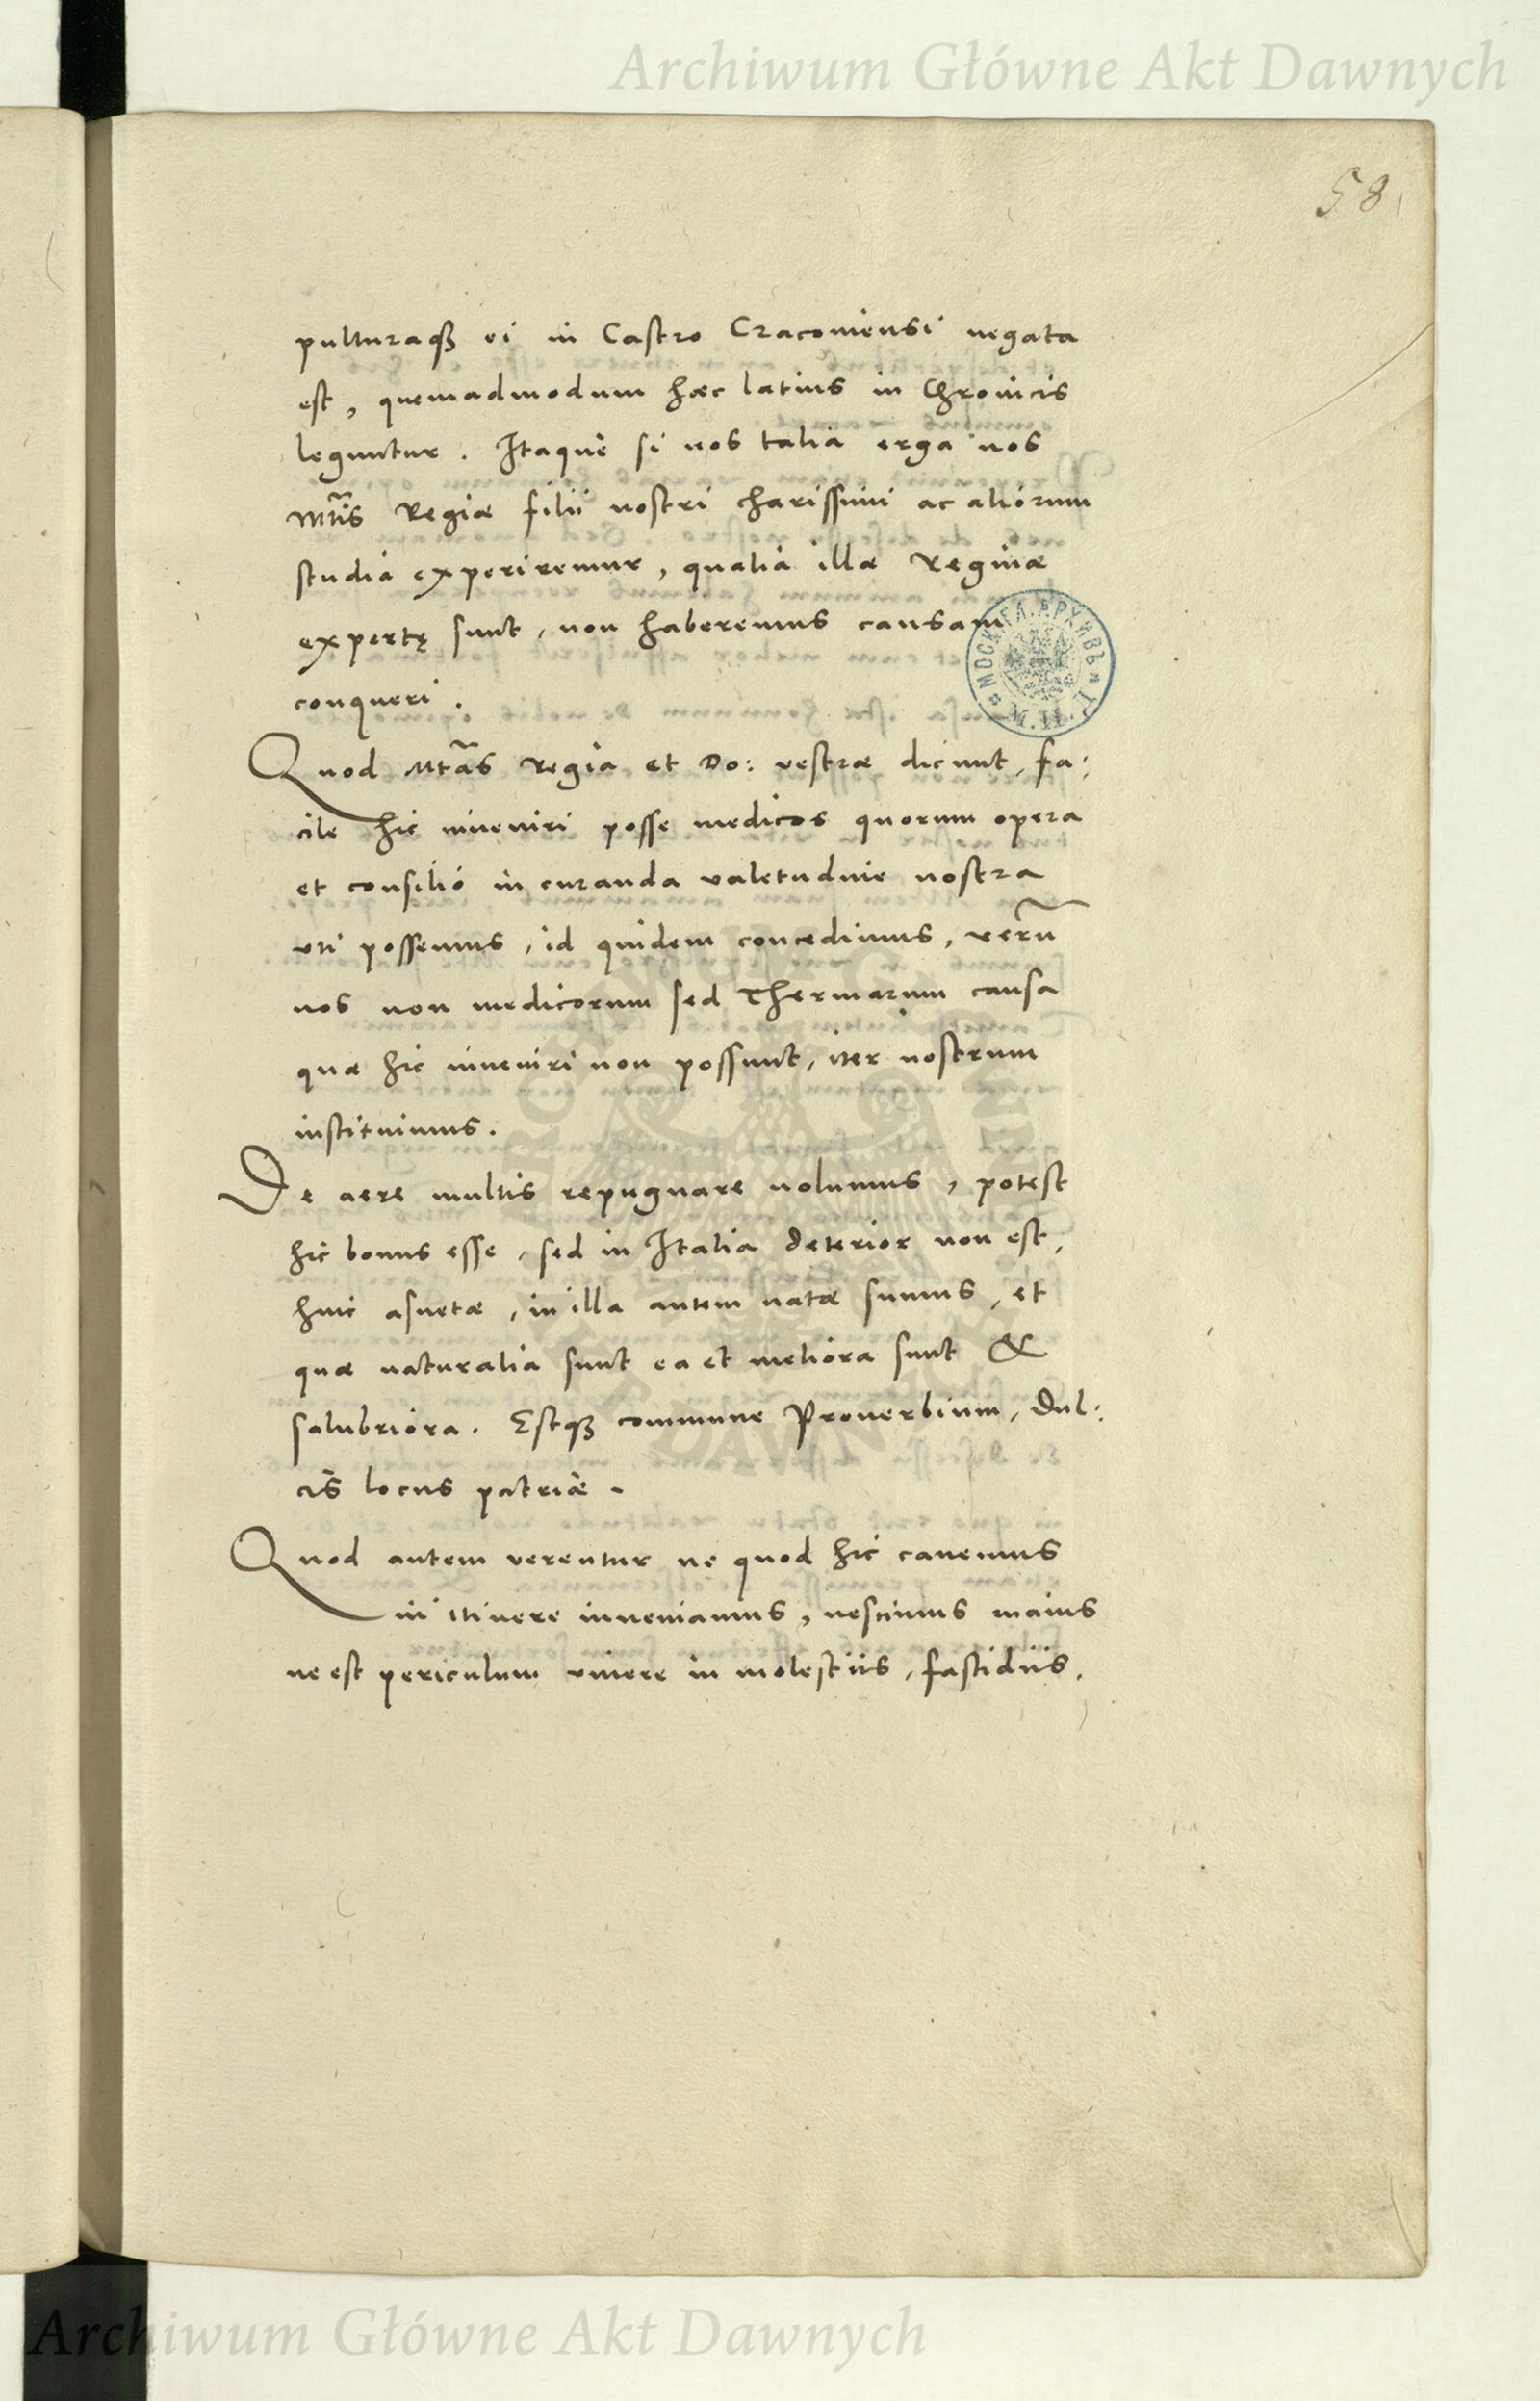 Archiwum Główne Akt Dawnych
58
pulturaqꝫ ei in Castro Cracoviensi negata
est, quemadmodum hæc latius in Chronicis
leguntur. Itaque si nos talia erga nos
Mtis Regiæ filii nostri charissimi ac aliorum
studia experiremur, qualia illæ Reginæ
expertę sunt, non haberemus causam
conqueri.
Quod Mtas Regia et Do: vestræ dicunt, fa:
cile hic inveniri posse medicos quorum opera
et consilio in curanda valetudine nostra
uti possemus, id quidem concedimus, verũ
nos non medicorum sed Thermarum causa
quæ hic inveniri non possunt, iter nostrum
instituimus.
De aere multis repugnare nolumus, potest
hic bonus esse, sed in Italia deterior non est,
huic asuetæ, in illa autem natæ sumus, et
quæ naturalia sunt ea et meliora sunt &
salubriora. Estqꝫ commune Proverbium, Dul:
cis locus patriæ.
Quod autem verentur ne quod hic cavemus
in itinere inveniamus, nescimus maius
ne est periculum vivere in molestiis, fastidiis,
МОСК. ГЛ. АРХИВЪ М. И. Д.
Archiwum Główne Akt Dawnych